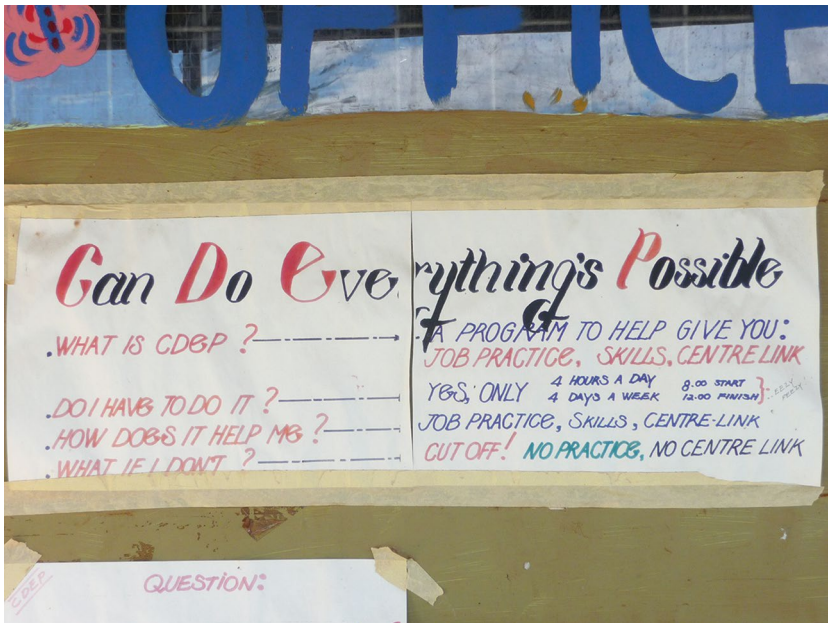 OFFICE
Can Do Everything's Possible
.WHAT IS CDEP?
.A PROGRAM TO HELP GIVE YOU:
JOB PRACTICE, SKILLS, CENTRE LINK
.DO I HAVE TO DO IT?
YES, ONLY 4 HOURS A DAY 8.00 START
4 DAYS A WEEK 12.00 FINISH
EEZY
PEEZY
.HOW DOES IT HELP ME?
JOB PRACTICE, SKILLS, CENTRE-LINK
.WHAT IF I DON'T?
CUT OFF! NO PRACTICE, NO CENTRE LINK
CDEP
QUESTION: